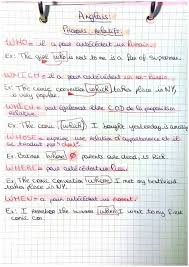 Anglais
Pronoms relatifs
WHO = il a pour antécédent un humain.
Ex: The guy who is next to me is a fan of Superman.
WHICH = il a pour antécédent un non-humain.
Ex: The comic convention (which) takes place in NY,
is very popular.
WHICH = peut également être COD de la proposition
relative.
Ex: The comic (which) I bought yesterday is amazing
WHOSE = exprime une relation d'appartenance et il
se traduit par "dont".
Ex: Batman whose parents are dead, is rich
WHERE = pour antécédent un lieu.
Ex: The comic convention (where) I met my best friend
takes place in NY.
WHEN = a pour antécédent un moment.
Ex: I remember the summer (when) I went to my first
comic Con.